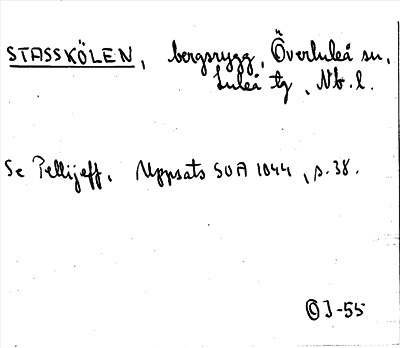 STASSKÖLEN, bergsrygg, Överluleå sn,
Luleå tg, Nb. l.
Se Pellijeff, Uppsats SOFI 1044, s. 38.
OJ-55